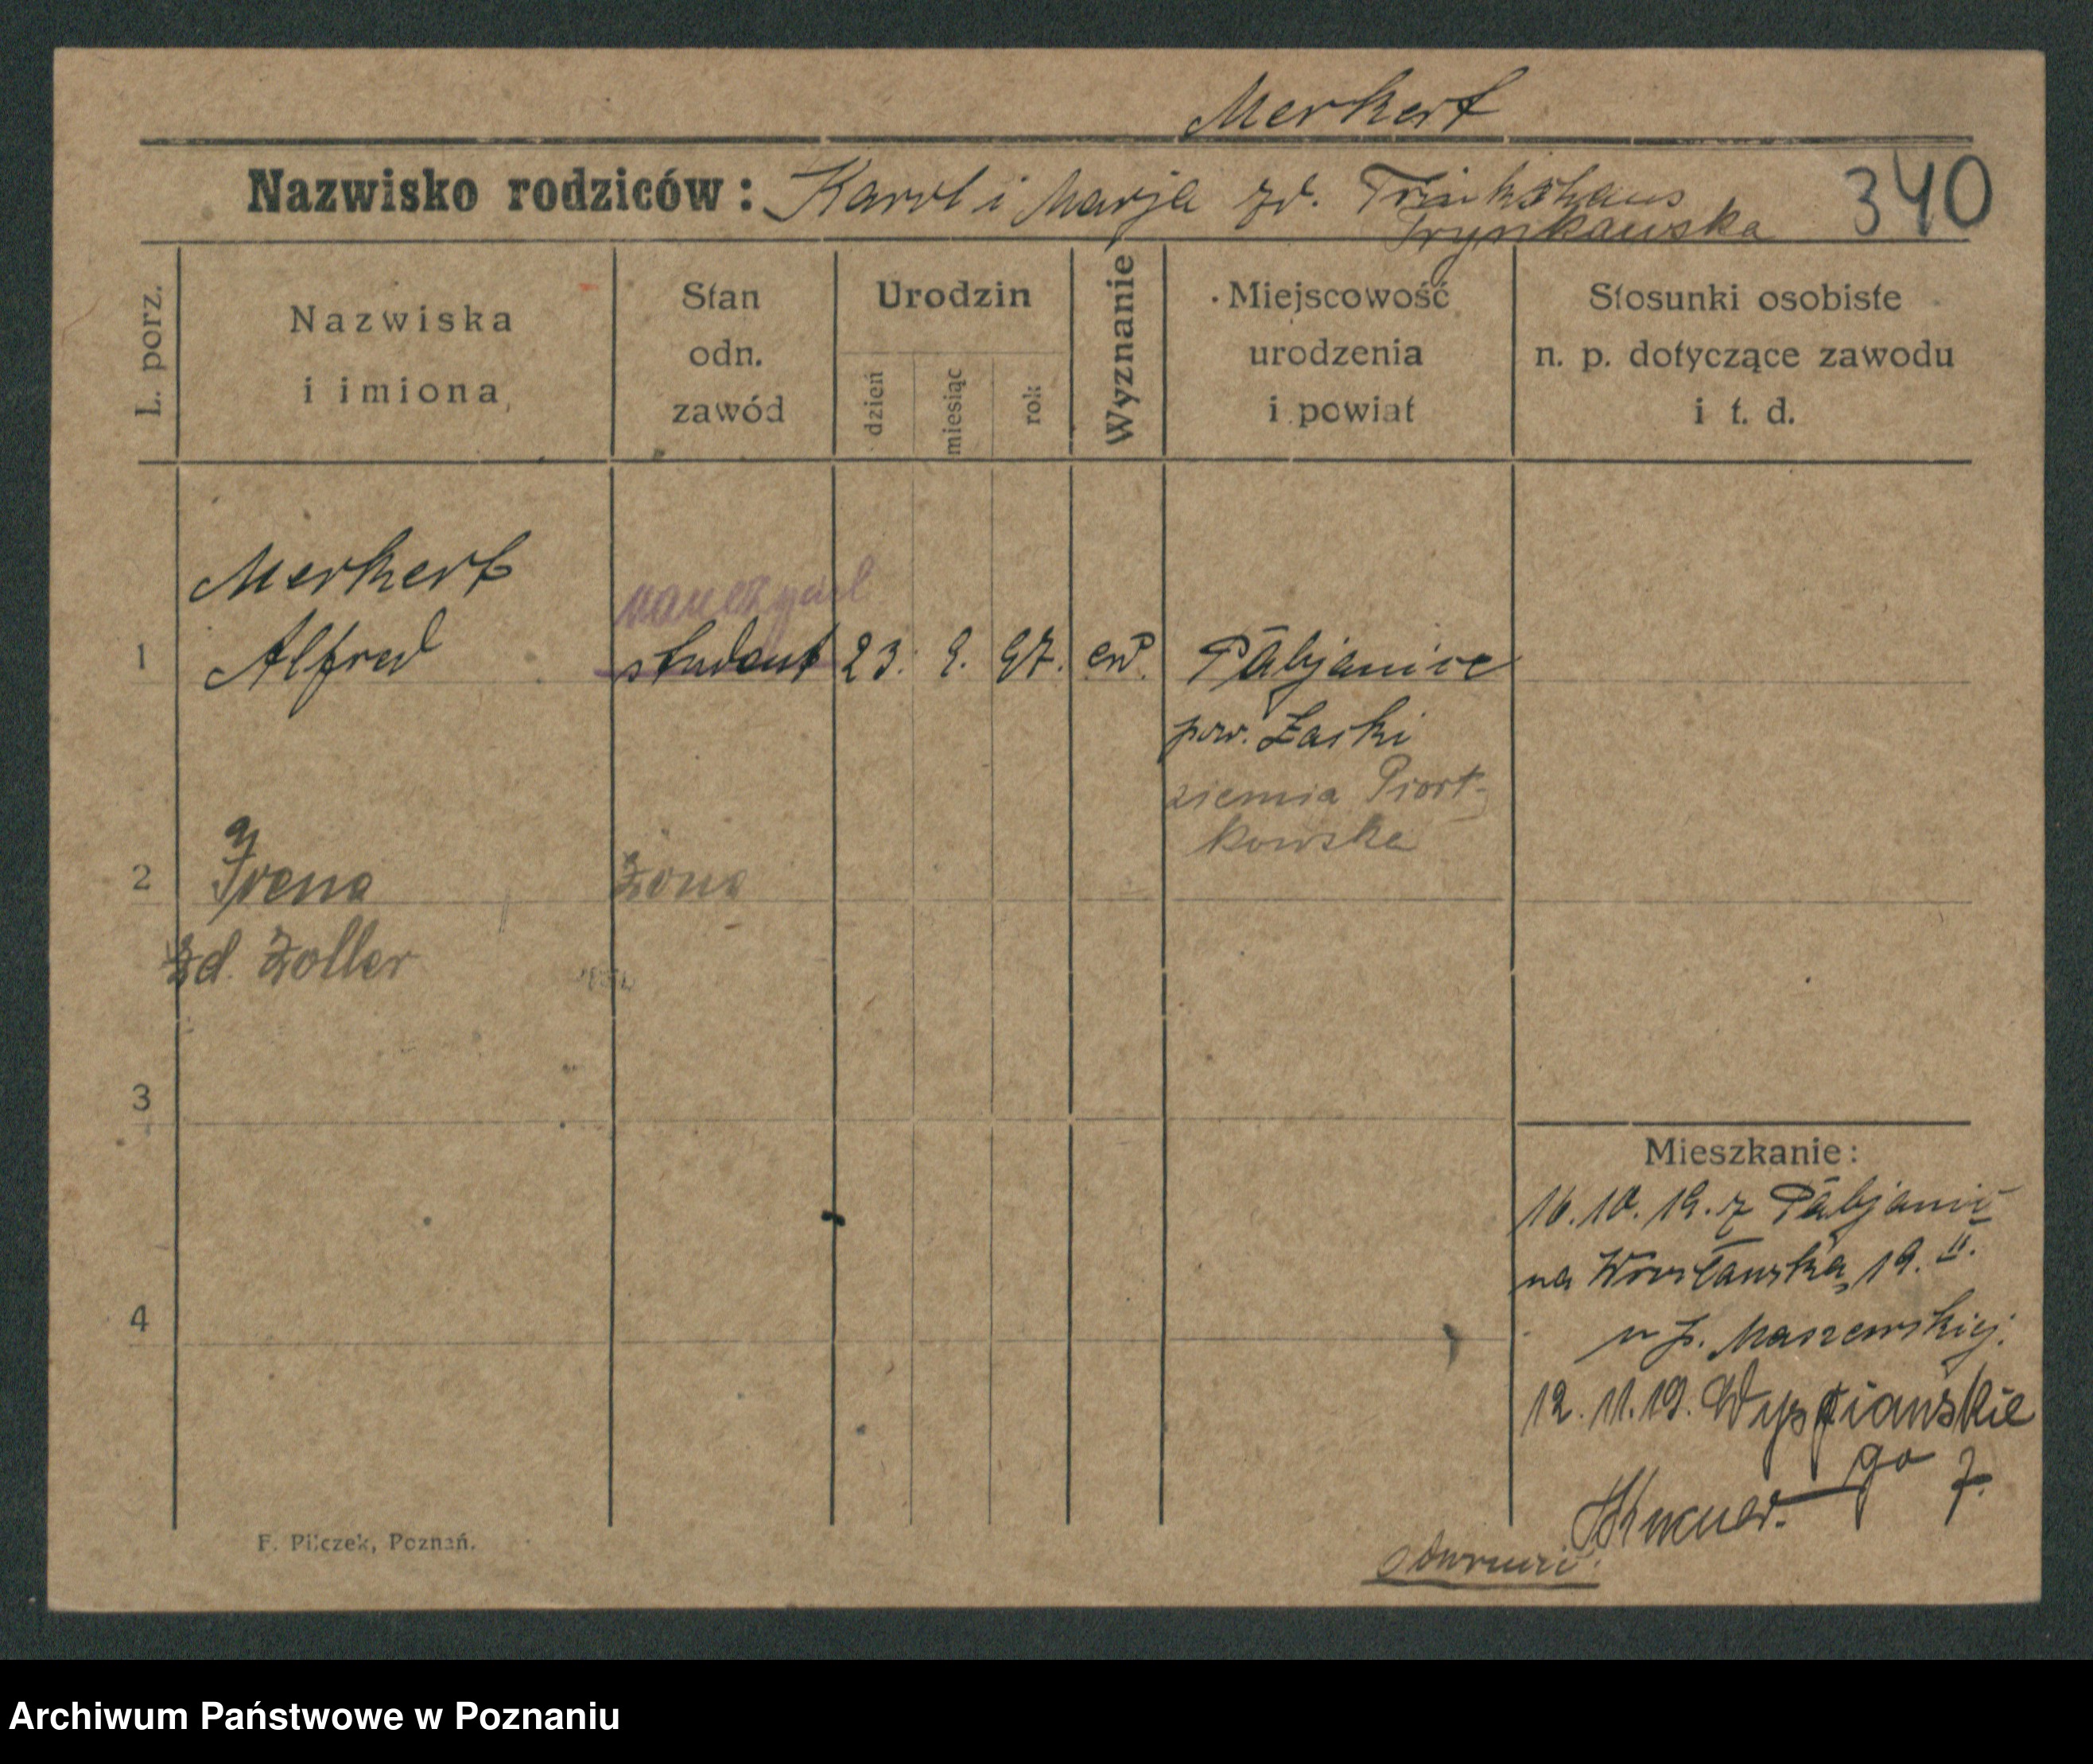 Merkert
Nazwisko rodziców: Karol i Marja zd. Trinkshaus
Trynkawska
340
L. porz.
Nazwiska
i imiona
Stan
odn.
zawód
Urodzin
dzień
miesiąc
rok
Wyznanie
Miejscowość
urodzenia
i powiat
Stosunki osobiste
n. p. dotyczące zawodu
i t. d.
Merkert
nauczyciel
1 Alfred student 23. 9. 97. ew. Pabjanice
pow. Łaski
ziemia Piort-
kowska
2 Irena żona
zd. Zoller
3
Mieszkanie:
16.10.19. z Pabjanic
na Wrocławską 19. II.
4
u p. Maszewskiej.
12.11.19. Wyspiańskie
go 7.
odwrócić
F. Pilczek, Poznań.
Archiwum Państwowe w Poznaniu